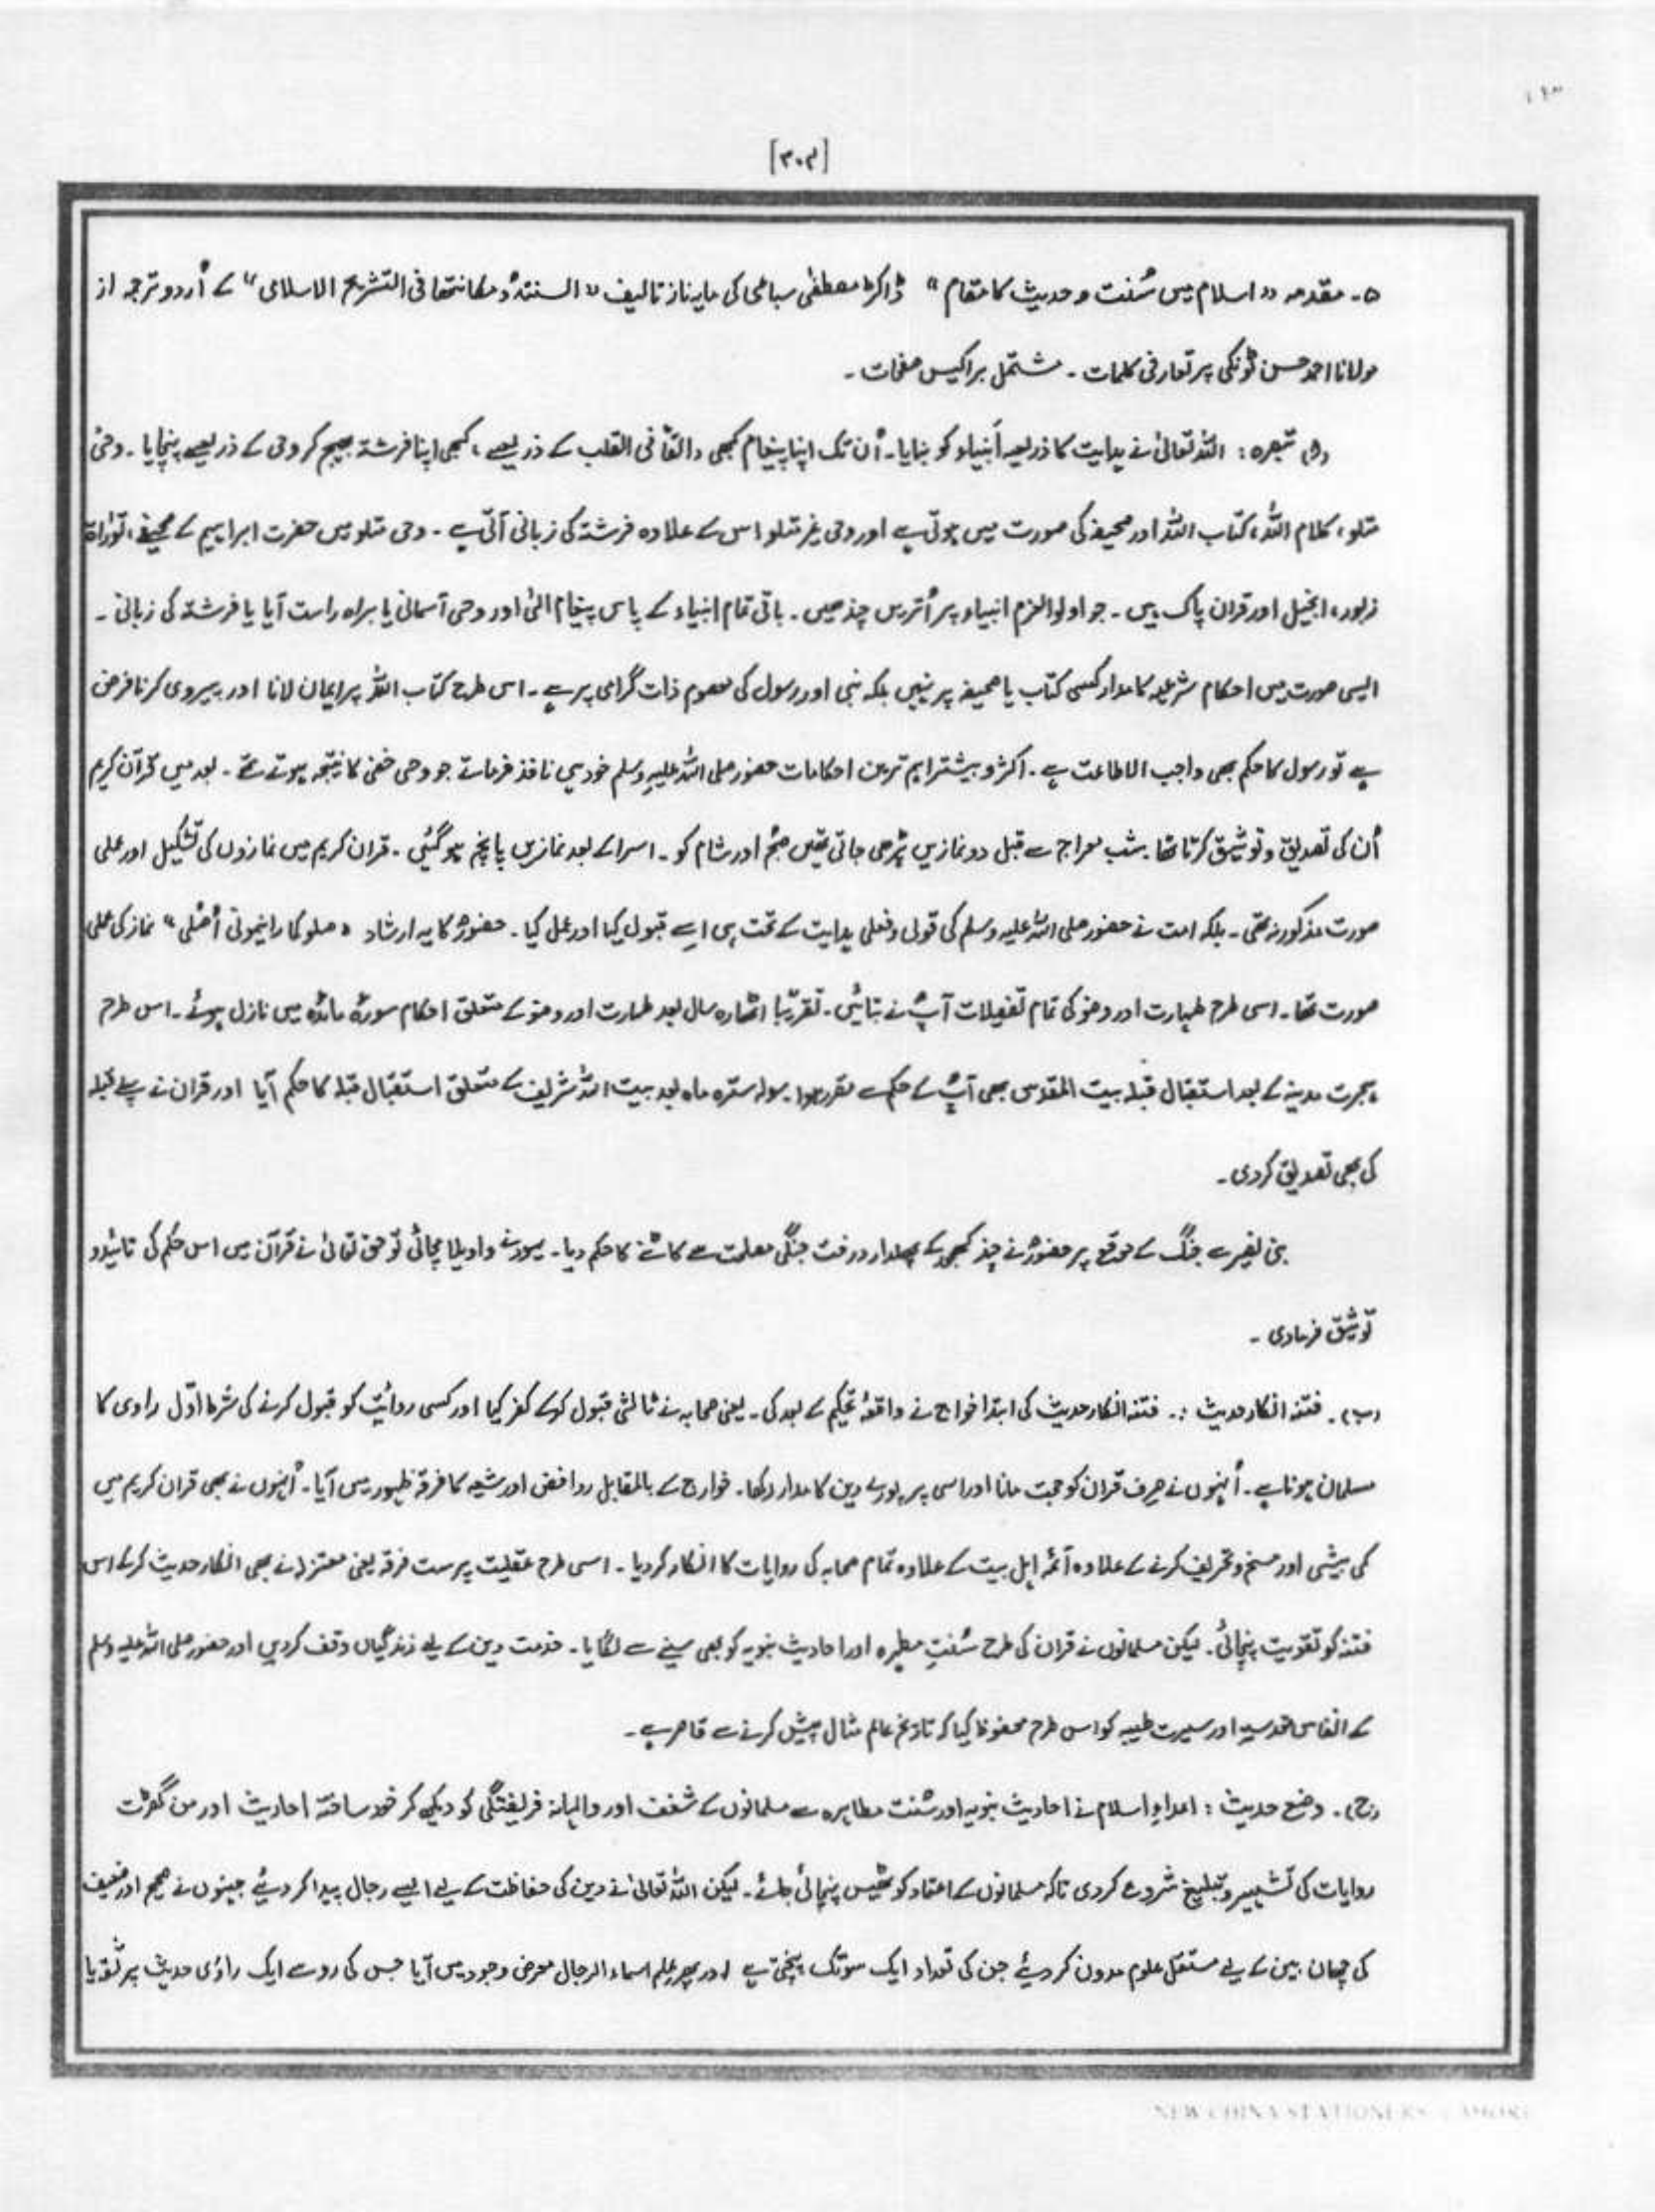 [۳۰۴]
۵۔ مقدمہ "اسلام میں سُنت و حدیث کا مقام" ڈاکٹر مصطفٰی سباعی کی مایہ ناز تالیف "السنتہ و مکانتھا فی التشریع الاسلامی" کے اُردو ترجمہ از
مولانا احمد حسن ٹونکی پر تعارفی کلمات ۔ مشتمل بر اکیس صفحات ۔
تبصرہ : اللہ تعالیٰ نے ہدایت کا ذریعہ اَنبیاء کو بنایا۔ اُن تک اپنا پیغام کبھی القا فی القلب کے ذریعے، کبھی اپنا فرشتہ بھیج کر وحی کے ذریعے پہنچایا ۔ وحی
متلو، کلام اللہ، کتاب اللہ اور صحیفہ کی صورت میں ہوتی ہے اور وحی غیر متلو اس کے علاوہ فرشتہ کی زبانی آتی ہے ۔ وحی متلو میں حضرت ابراہیم کے صحیفے، توراۃ
زبور، انجیل اور قران پاک ہیں ۔ جو اولوالعزم انبیاء پر اُتریں چند ہیں ۔ باقی تمام انبیاء کے پاس پیغام الٰہی اور وحی آسمانی یا براہ راست آیا یا فرشتہ کی زبانی ۔
ایسی صورت میں احکام شرعیہ کا مدار کسی کتاب یا صحیفہ پر نہیں بلکہ نبی اور رسول کی معصوم ذات گرامی پر ہے ۔ اس طرح کتاب اللہ پر ایمان لانا اور پیروی کرنا فرض
ہے تو رسول کا حکم بھی واجب الاطاعت ہے ۔ اکثر و بیشتر اہم ترین احکامات حضور صلی اللہ علیہ وسلم خود ہی نافذ فرماتے جو وحی خفی کا نتیجہ ہوتے تھے ۔ بعد میں قرآن کریم
اُن کی تصدیق و توثیق کرتا تھا ۔ شب معراج سے قبل دو نمازیں پڑھی جاتی تھیں صبح اور شام کو ۔ اسرا کے بعد نمازیں پانچ ہو گئیں ۔ قران کریم میں نمازوں کی تشکیل اور عملی
صورت مذکور نہ تھی ۔ بلکہ امت نے حضور صلی اللہ علیہ وسلم کی قولی و فعلی ہدایت کے تحت ہی اسے قبول کیا اور عمل کیا ۔ حضورؐ کا یہ ارشاد "صلو کما رائیمونی اُصلی" نماز کی عملی
صورت تھا ۔ اسی طرح طہارت اور وضو کی تمام تفصیلات آپؐ نے بتائیں ۔ تقریباً اٹھارہ سال بعد طہارت اور وضو کے متعلق احکام سورۃ مائدہ میں نازل ہوئے ۔ اس طرح
ہجرت مدینہ کے بعد استقبال قبلہ بیت المقدس بھی آپؐ کے حکم سے مقرر ہوا ۔ سولہ سترہ ماہ بعد بیت اللہ شریف کے متعلق استقبال قبلہ کا حکم آیا اور قران نے پہلے قبلہ
کی بھی تصدیق کردی ۔
بنی نضیر سے جنگ کے موقع پر حضورؐ نے چند کھجور کے پھلدار درخت جنگی مصلحت سے کاٹنے کا حکم دیا ۔ یہود نے واویلا مچائی تو حق تعالیٰ نے قرآن میں اس حکم کی تائید و
توثیق فرمادی ۔
(ب)۔ فتنہ انکار حدیث :۔ فتنہ انکار حدیث کی ابتدا خوارج نے واقعۂ تحکیم کے بعد کی ۔ یعنی صحابہ نے ثالثی قبول کرکے کفر کیا اور کسی روائیت کو قبول کرنے کی شرط اوّل راوی کا
مسلمان ہونا ہے ۔ اُنہوں نے صرف قران کو حجت مانا اور اسی پر پورے دین کا مدار رکھا ۔ خوارج کے بالمقابل روافض اور شیعہ کا فرقہ ظہور میں آیا ۔ اُنہوں نے بھی قران کریم میں
کمی بیشی اور مسخ و تحریف کرنے کے علاوہ آئمہ اہل بیت کے علاوہ تمام صحابہ کی روایات کا انکار کردیا ۔ اسی طرح عقلیت پرست فرقہ یعنی معتزلہ نے بھی انکار حدیث کرکے اس
فتنہ کو تقویت پہنچائی ۔ لیکن مسلمانوں نے قران کی طرح سُنتِ مطہرہ اور احادیث نبویہ کو بھی سینے سے لگایا ۔ خدمت دین کے لیے زندگیاں وقف کردیں اور حضور صلی اللہ علیہ وسلم
کے انفاس قدسیہ اور سیرت طیبہ کو اس طرح محفوظ کیا کہ تاریخ عالم مثال پیش کرنے سے قاصر ہے ۔
(ج)۔ وضع حدیث : اعداءِ اسلام نے احادیث نبویہ اور سُنت مطاہرہ سے مسلمانوں کے شغف اور والہانہ فریفتگی کو دیکھ کر خود ساختہ احادیث اور من گھڑت
روایات کی تشہیر و تبلیغ شروع کردی تاکہ مسلمانوں کے اعتماد کو ٹھیس پہنچائی جائے ۔ لیکن اللہ تعالیٰ نے دین کی حفاظت کے لیے ایسے رجال پیدا کر دیئے جنہوں نے صحیح اور ضعیف
کی چھان بین کے لیے مستقل علوم مدون کر دیئے جن کی تعداد ایک سو تک پہنچتی ہے اور پھر علم اسماء الرجال معرض وجود میں آیا جس کی رو سے ایک راوی حدیث پر ثقہ یا
NEW CHINA STATIONERS LAHORE